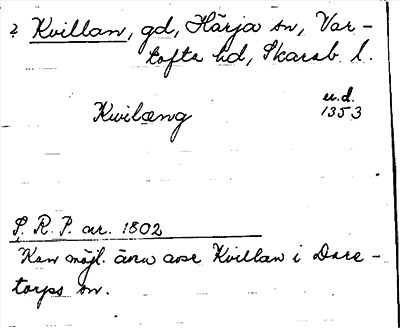 ? Kvillan, gd, Härja sn, Var-
tofta hd, Skarab. l.
Kwilæng
u.d.
1353
S. R. P. nr. 1802
Kan möjl. även avse Kvillan i Dare-
torps sn.